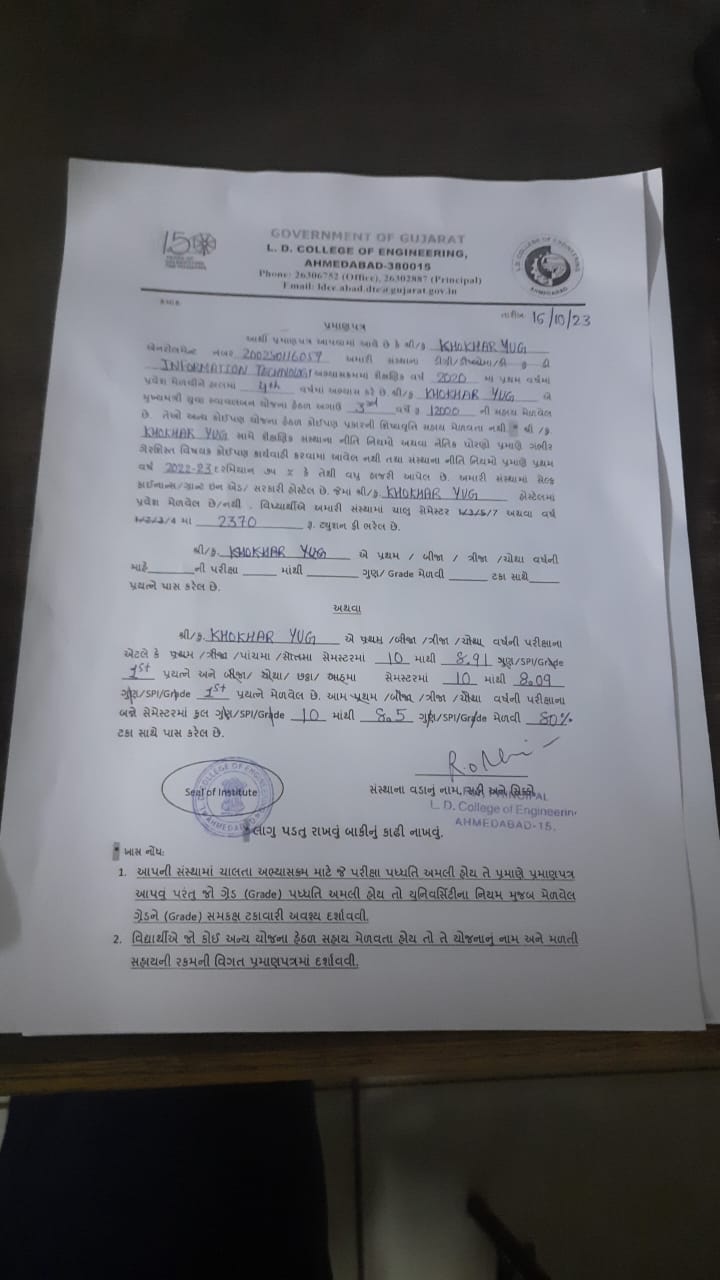 150
YEARS OF
CELEBRATING
THE MAHATMA
GOVERNMENT OF GUJARAT
L. D. COLLEGE OF ENGINEERING,
AHMEDABAD-380015
Phone: 26306752 (Office), 26302887 (Principal)
Email: ldce.abad.dte@gujarat.gov.in
L.D. COLLEGE OF ENGINEERING
AHMEDABAD
તારીખ 16/10/23
પ્રમાણપત્ર
આથી પ્રમાણપત્ર આપવામાં આવે છે કે શ્રી/કુ. KHOKHAR YUG
એનરોલમેન્ટ નંબર 200280116059 અમારી સંસ્થાના ડીગ્રી/ડિપ્લોમા
INFORMATION TECHNOLOGY અભ્યાસક્રમમાં શૈક્ષણિક વર્ષ 2020 મા પ્રથમ વર્ષમાં
પ્રવેશ મેળવીને હાલમાં 4th વર્ષમાં અભ્યાસ કરે છે. શ્રી/કુ. KHOKHAR YUG એ
મુખ્યમંત્રી યુવા સ્વાવલંબન યોજના હેઠળ અગાઉ 3rd વર્ષે રૂ 12000 ની સહાય મેળવેલ
છે. તેઓ અન્ય કોઈપણ યોજના હેઠળ કોઈપણ પ્રકારની શિષ્યવૃતિ સહાય મેળવતા નથી.* શ્રી /કુ.
KHOKHAR YUG સામે શૈક્ષણિક સંસ્થાના નીતિ નિયમો અથવા નૈતિક ધોરણો પ્રમાણે ગંભીર
ગેરશિસ્ત વિષયક કોઈપણ કાર્યવાહી કરવામાં આવેલ નથી તથા સંસ્થાના નીતિ નિયમો પ્રમાણે પ્રથમ
વર્ષ 2022-23 દરમિયાન ૭૫ % કે તેથી વધુ હાજરી આપેલ છે. અમારી સંસ્થામાં સેલ્ફ
ફાઈનાન્સ/ગ્રાન્ટ ઇન એડ/ સરકારી હોસ્ટેલ છે. જેમાં શ્રી/કુ. KHOKHAR YUG હોસ્ટેલમાં
પ્રવેશ મેળવેલ છે/નથી . વિધ્યાર્થીએ અમારી સંસ્થામાં ચાલુ સેમેસ્ટર 1/3/5/7 અથવા વર્ષ
1/2/3/4 માં 2370 રૂ. ટ્યુશન ફી ભરેલ છે.
શ્રી/કુ. KHOKHAR YUG એ પ્રથમ / બીજા / ત્રીજા /ચોથા વર્ષની
માહે ની પરીક્ષા માંથી ગુણ/ Grade મેળવી ટકા સાથે
પ્રયત્ને પાસ કરેલ છે.
અથવા
શ્રી/કુ. KHOKHAR YUG એ પ્રથમ /બીજા /ત્રીજા /ચોથા વર્ષની પરીક્ષાના
એટલે કે પ્રથમ /ત્રીજા /પાંચમા /સાતમા સેમેસ્ટરમાં 10 માંથી 8.91 ગુણ/SPI/Grade
1st પ્રયત્ને અને બીજા/ ચોથા/ છઠ્ઠા/ આઠમા સેમેસ્ટરમાં 10 માંથી 8.09
ગુણ/SPI/Grade 1st પ્રયત્ને મેળવેલ છે. આમ પ્રથમ /બીજા /ત્રીજા /ચોથા વર્ષની પરીક્ષાના
બન્ને સેમેસ્ટરમાં કુલ ગુણ/SPI/Grade 10 માંથી 8.5 ગુણ/SPI/Grade મેળવી 80%
ટકા સાથે પાસ કરેલ છે.
Seal of Institute
સંસ્થાના વડાનું નામ, સહી અને સિક્કો
L. D. College of Engineerin
AHMEDABAD-15.
*લાગુ પડતુ રાખવું બાકીનું કાઢી નાખવું.
* ખાસ નોંધ:
1. આપની સંસ્થામાં ચાલતા અભ્યાસક્રમ માટે જે પરીક્ષા પધ્ધતિ અમલી હોય તે પ્રમાણે પ્રમાણપત્ર
આપવું પરંતુ જો ગ્રેડ (Grade) પધ્ધતિ અમલી હોય તો યુનિવર્સિટીના નિયમ મુજબ મેળવેલ
ગ્રેડને (Grade) સમકક્ષ ટકાવારી અવશ્ય દર્શાવવી.
2. વિદ્યાર્થીએ જો કોઈ અન્ય યોજના હેઠળ સહાય મેળવતા હોય તો તે યોજનાનું નામ અને મળતી
સહાયની રકમની વિગત પ્રમાણપત્રમાં દર્શાવવી.